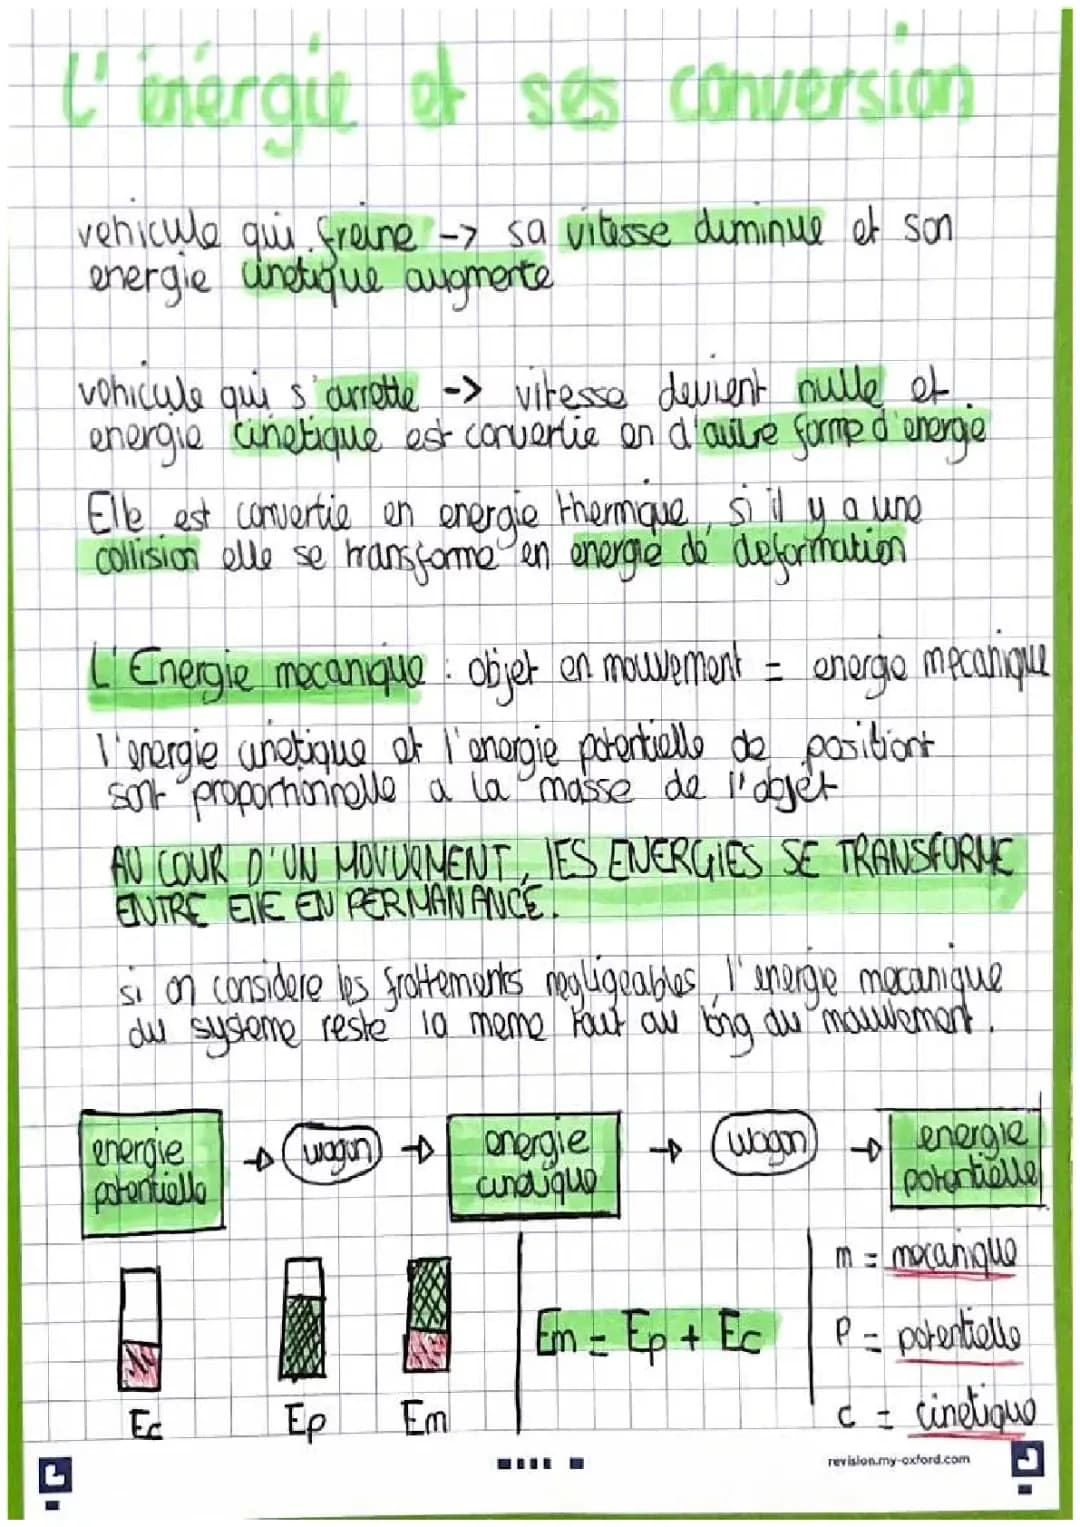 L'énergie et ses conversion
vehicule qui freine -> sa vitesse diminue et son
energie cinetique augmente
vehicule qui s'arrette -> vitesse devient nulle et
energie cinetique est convertie en d'autre forme d'energie
Elle est convertie en energie thermique, si il y a une
collision elle se transforme en energie de deformation
L'Energie mecanique : objet en mouvement = energie mecanique
l'energie cinetique et l'energie potentielle de positiont
sont proportionnelle a la masse de l'objet
AU COUR D'UN MOUVEMENT, LES ENERGIES SE TRANSFORME
ENTRE ELLE EN PERMANANCE.
si on considere les frottements negligeables, l'energie mecanique
du systeme reste la meme tout au long du mouvement.
energie potentielle -> wagon -> energie cinetique -> wagon -> energie potentielle
m = mecanique
Em = Ep + Ec
P = potentielle
Ec Ep Em
c = cinetique
revision.my-oxford.com